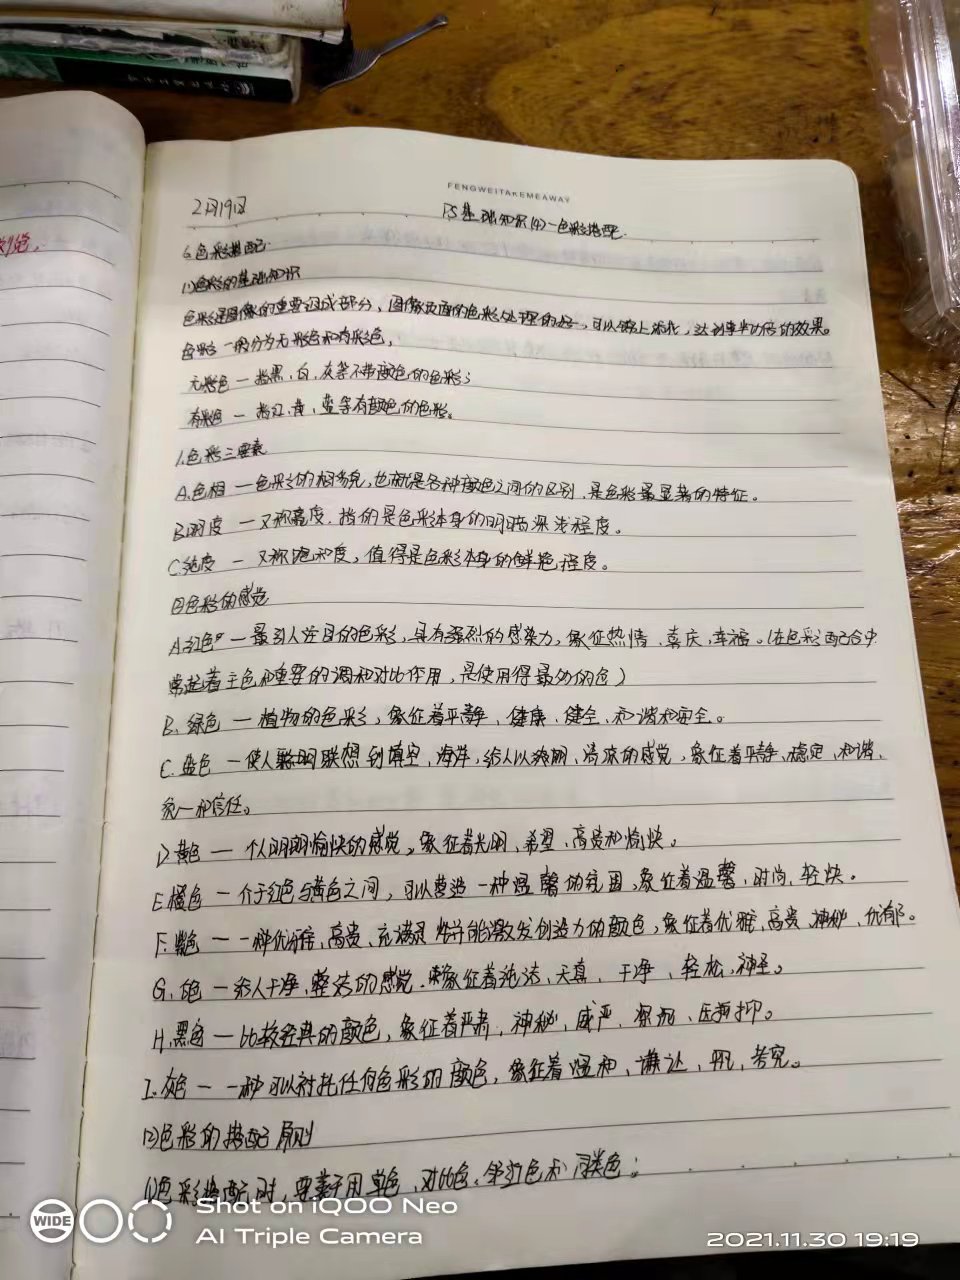 FENGWEITAKEMEAWAY
2月19日
PS基础知识(4)一色彩搭配.
6.色彩搭配
(1)色彩的基础知识
色彩是图像的重要组成部分,图像页面的色彩处理的好,可以锦上添花,达到事半功倍的效果。
色彩一般分为无彩色和有彩色,
无彩色一指黑、白、灰等不带颜色的色彩;
有彩色一指红、黄、蓝等有颜色的色彩。
1.色彩三要素
A.色相一色彩的相貌,也就是各种颜色之间的区别,是色彩最显著的特征。
B.明度一又称亮度,指的是色彩本身的明暗深浅程度。
C.纯度一又称饱和度,值得是色彩本身的鲜艳程度。
色彩的感觉
A.红色一最引人注目的色彩,具有强烈的感染力,象征热情、喜庆、幸福。(在色彩配合中
常起着主色和重要的调和对比作用,是使用得最多的色)
B.绿色一植物的色彩,象征着平静、健康、健全、和谐和安全。
C.蓝色一使人联想到填空、海洋,给人以爽朗、清凉的感觉,象征着平静、稳定、和谐、
和信任。
D.黄色一个人明朗愉快的感觉,象征着光明、希望、高贵和愉快。
E.橙色一介于红色与黄色之间,可以营造一种温馨的氛围,象征着温馨、时尚、轻快。
F.紫色一一种优雅、高贵、充满灵性并能激发创造力的颜色,象征着优雅、高贵、神秘、优郁。
G.白色一给人干净、整洁的感觉,象征着纯洁、天真、干净、轻松、神圣。
H.黑色一比较经典的颜色,象征着严肃、神秘、威严、压抑。
I.灰色一一种可以衬托任何色彩的颜色,象征着温和、谦让、考究。
(2)色彩的搭配原则
(1)色彩搭配时,要善于用单色、对比色、邻近色和同类色;
WIDE
Shot on iQOO Neo
AI Triple Camera
2021.11.30 19:19